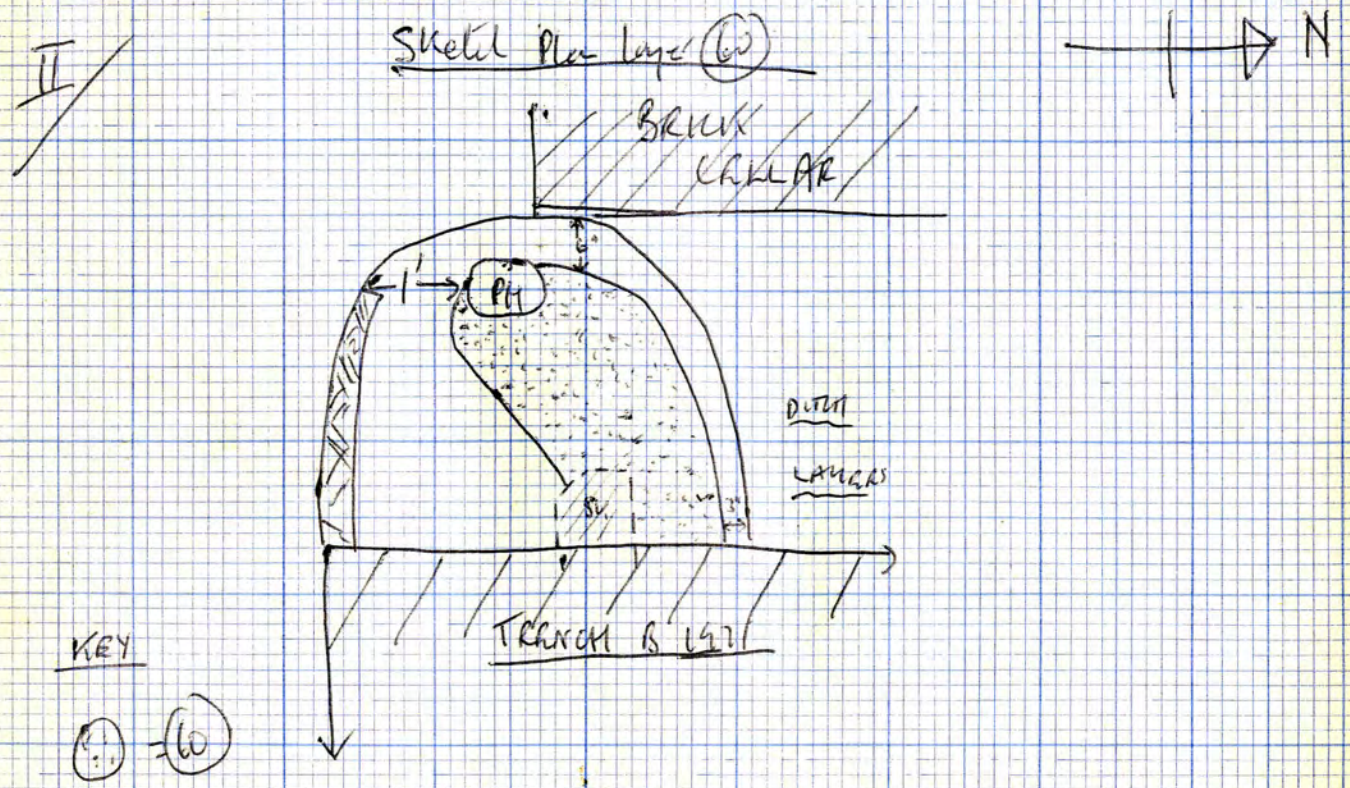 II/
Sketch Plan Layer 60
N
BRICK
CELLAR
1'
6"
PH
DITCH
LAYERS
3"
TRENCH B 1971
KEY
= 60